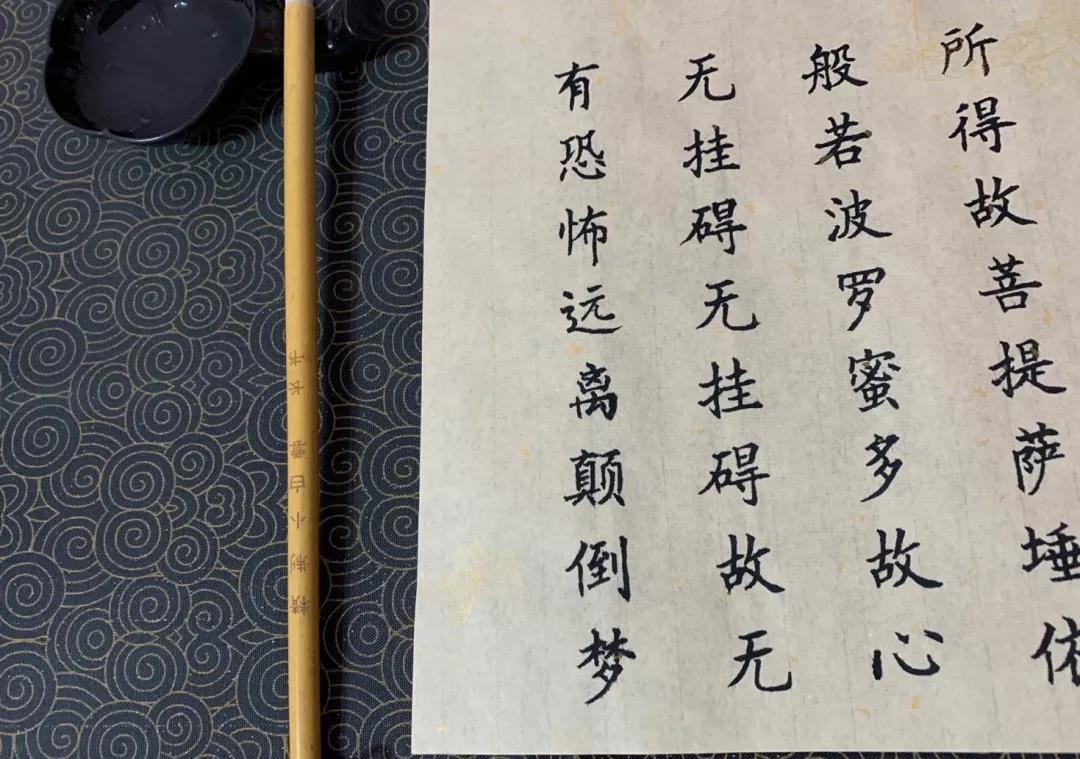 所得故菩提萨埵依
般若波罗蜜多故心
无挂碍无挂碍故无
有恐怖远离颠倒梦
小白雲